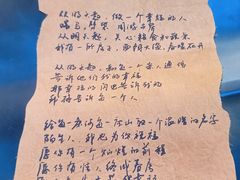 从明天起，做一个幸福的人
喂马，劈柴，周游世界
从明天起，关心粮食和蔬菜
我有一所房子，面朝大海，春暖花开
从明天起，和每一个亲人通信
告诉他们我的幸福
那幸福的闪电告诉我的
我将告诉每一个人
给每一条河每一座山取一个温暖的名字
陌生人，我也为你祝福
愿你有一个灿烂的前程
愿你有情人终成眷属